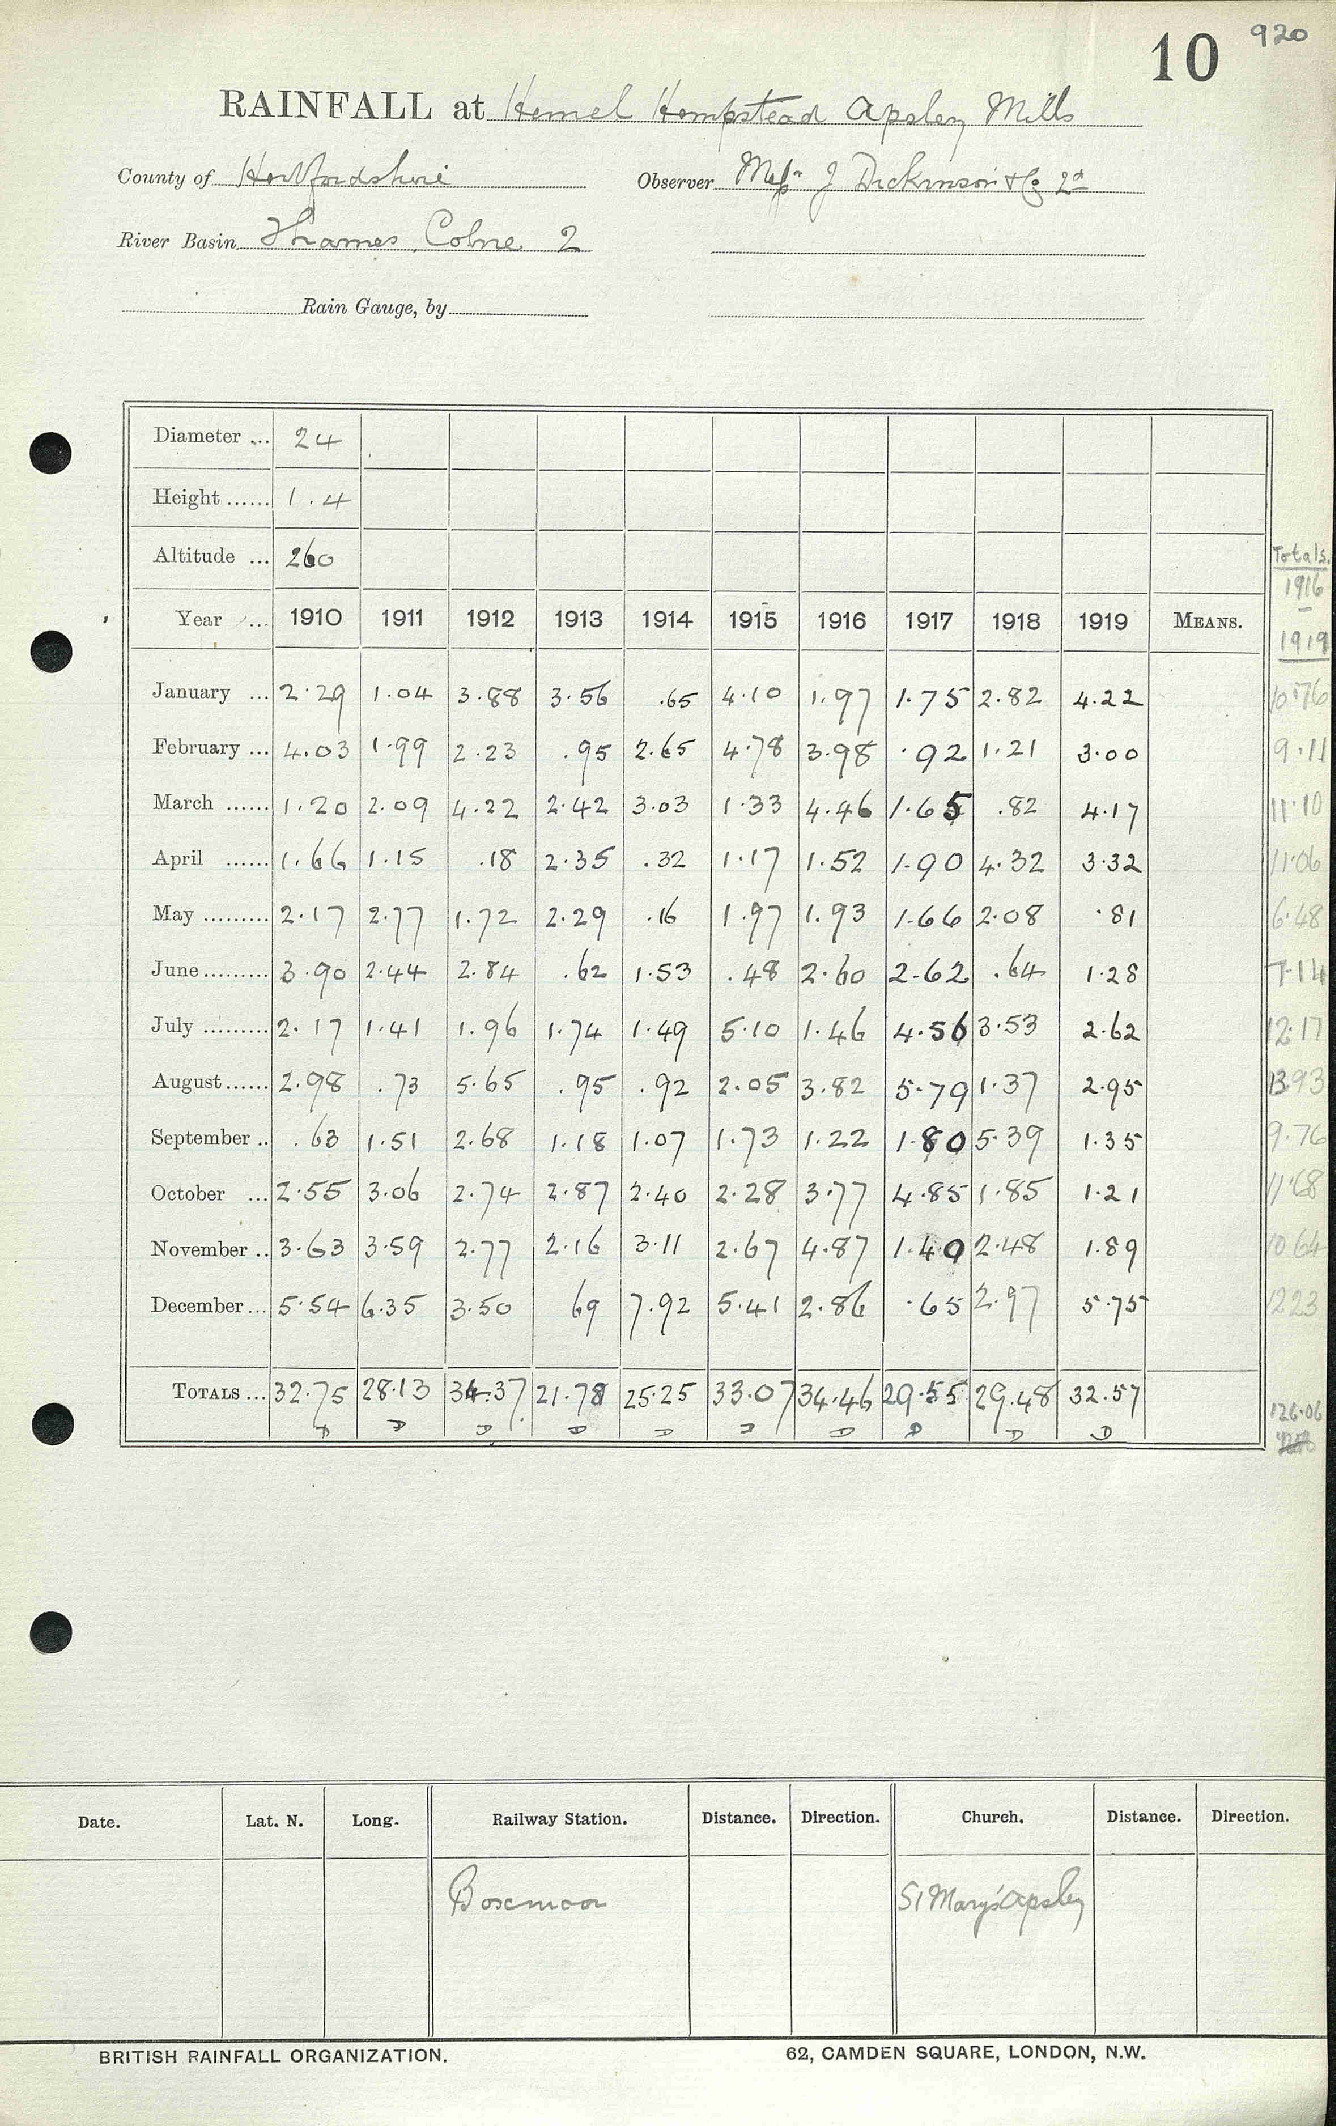 10 920
RAINFALL at Hemel Hempstead Apsley Mills
County of Hertfordshire Observer Messrs J Dickinson & Co Ld
River Basin Thames, Colne 2
Rain Gauge, by
Diameter ... 24
Height ...... 1.4
Altitude ... 260
Totals.
1916
–
1919
Year ... 1910 1911 1912 1913 1914 1915 1916 1917 1918 1919 MEANS.
January ... 2.29 1.04 3.88 3.56 .65 4.10 1.97 1.75 2.82 4.22 10.76
February ... 4.03 1.99 2.23 .95 2.65 4.78 3.98 .92 1.21 3.00 9.11
March ...... 1.20 2.09 4.22 2.42 3.03 1.33 4.46 1.65 .82 4.17 11.10
April ...... 1.66 1.15 .18 2.35 .32 1.17 1.52 1.90 4.32 3.32 11.06
May ......... 2.17 2.77 1.72 2.29 .16 1.97 1.93 1.66 2.08 .81 6.48
June ......... 3.90 2.44 2.84 .62 1.53 .48 2.60 2.62 .64 1.28 7.14
July ......... 2.17 1.41 1.96 1.74 1.49 5.10 1.46 4.56 3.53 2.62 12.17
August ...... 2.98 .73 5.65 .95 .92 2.05 3.82 5.79 1.37 2.95 13.93
September .. .63 1.51 2.68 1.18 1.07 1.73 1.22 1.80 5.39 1.35 9.76
October ... 2.55 3.06 2.74 2.87 2.40 2.28 3.77 4.85 1.85 1.21 11.68
November .. 3.63 3.59 2.77 2.16 3.11 2.67 4.87 1.40 2.48 1.89 10.64
December ... 5.54 6.35 3.50 69 7.92 5.41 2.86 .65 2.97 5.75 12.23
TOTALS ... 32.75 28.13 34.37 21.78 25.25 33.07 34.46 29.55 29.48 32.57 126.06
D D D D D D D D D D
Date. Lat. N. Long. Railway Station. Distance. Direction. Church. Distance. Direction.
Boxmoor St Mary's Apsley
BRITISH RAINFALL ORGANIZATION. 62, CAMDEN SQUARE, LONDON, N.W.